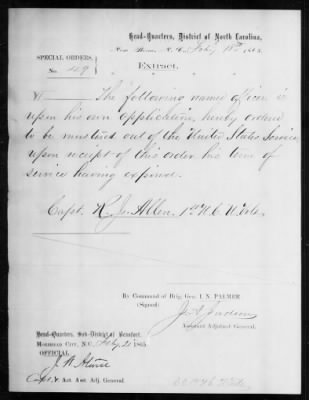 Head-Quarters, District of North Carolina,
New Berne, N. C., Feb'y 18th 1865.
SPECIAL ORDERS,
No. 49
Extract.
VI The following named officer is
upon his own application, hereby ordered
to be mustered out of the United States Service
upon receipt of this order his term of
service having expired.
Capt. R. J. Allen. 1st N. C. U. Vols.
By Command of Brig. Gen. I. N. PALMER.
(Signed)
J. A. Judson
Assistant Adjutant General.
Head-Quarters, Sub-District of Beaufort,
MOREHEAD CITY, N.C., Feb'y 21 1865
OFFICIAL.
J. W.
Capt. & Act. Ass. Adj. General.